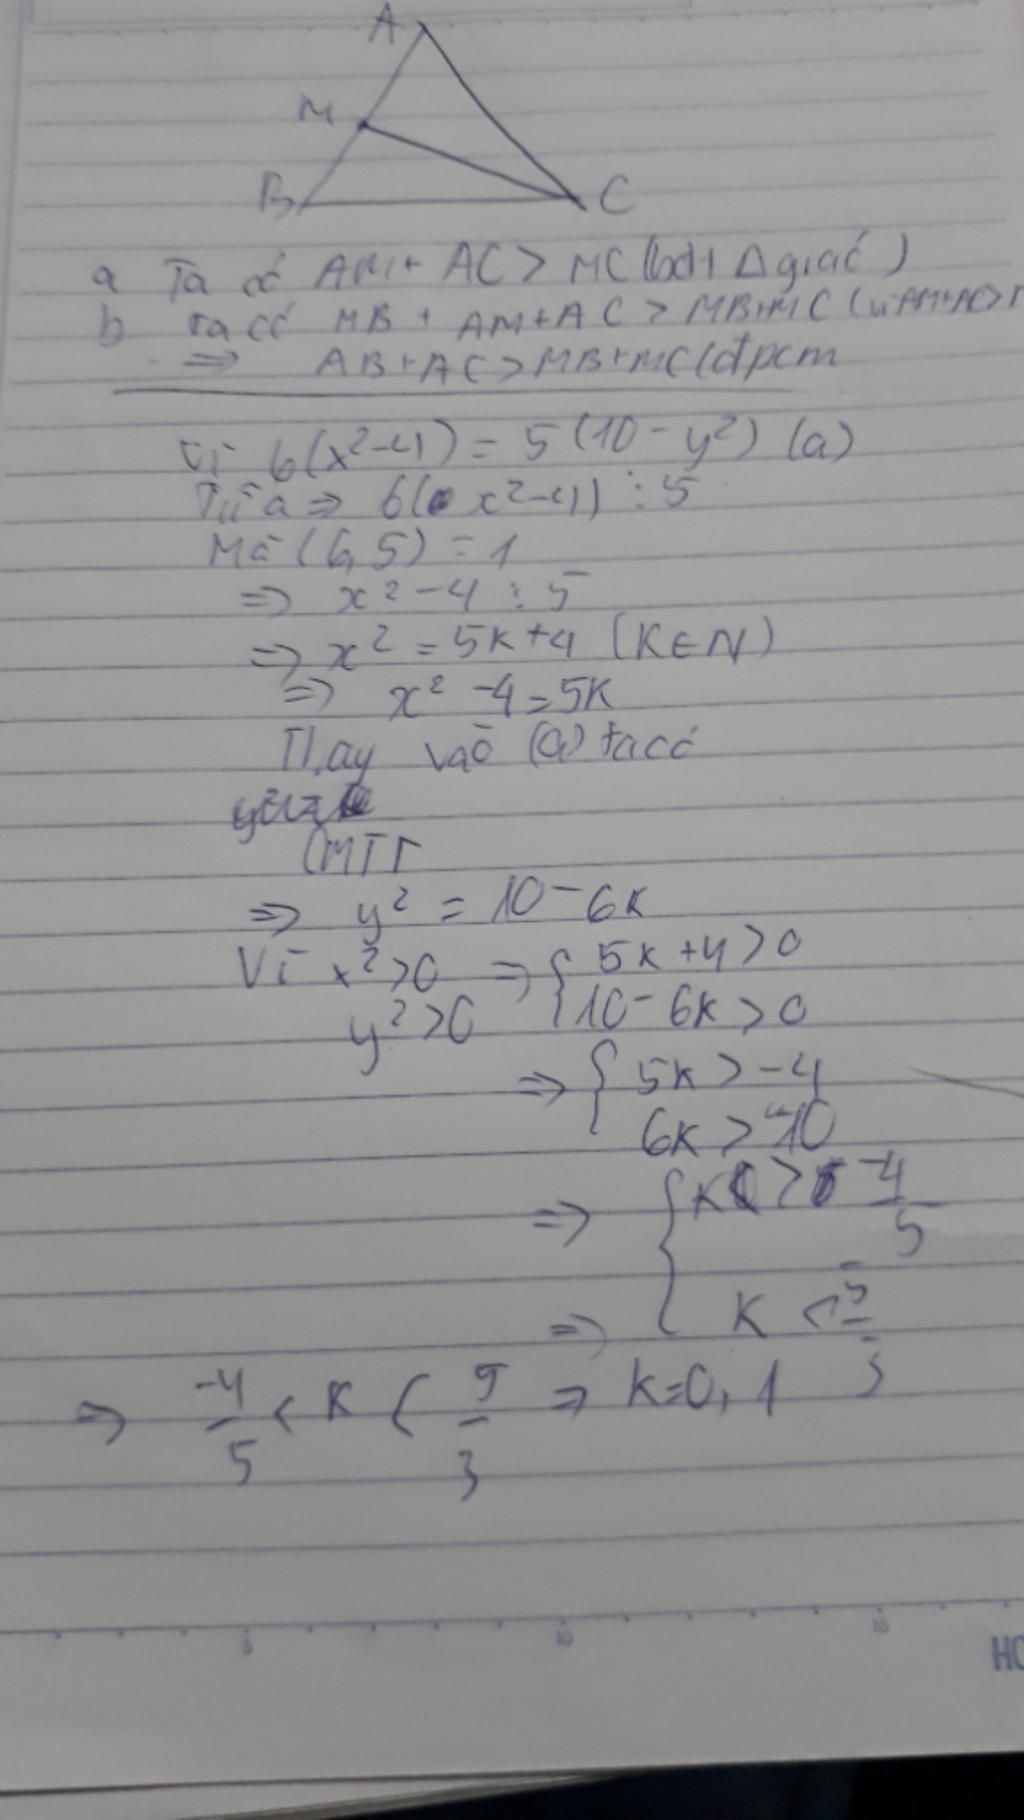 A
M
B
C
a Ta có AM + AC > MC (bđt Δ giác)
b Ta có MB + AM + AC > MB + MC (vì AM+AC>M
=> AB + AC > MB + MC (đpcm
Vì 6(x²-4) = 5(10-y²) (a)
Từ a => 6(x²-4) ⋮ 5
Mà (6,5) = 1
=> x²-4 ⋮ 5
=> x² = 5k+4 (k∈N)
=> x² -4 = 5k
Thay vào (a) ta có
CMTT
=> y² = 10-6k
Vì x²>0 => { 5k+4>0
y²>0 10-6k>0
=> { 5k > -4
6k > -10
=> { k > -4/5
=> k < 5/3
=> -4/5 < k < 5/3 => k=0,1
5
10
15
HO